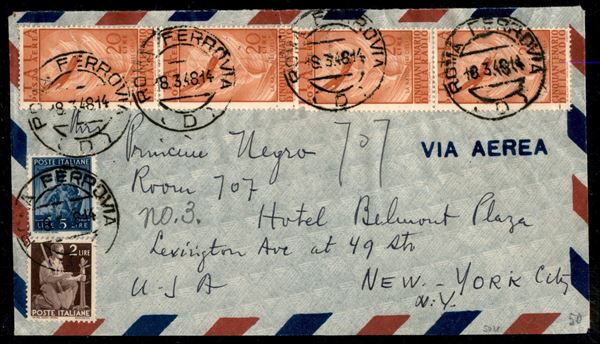 ROMA FERROVIA
18.3.48.14
D
ROMA FERROVIA
18.3.48.14
D
ROMA FERROVIA
18.3.48.14
D
ROMA FERROVIA
18.3.48.14
D
POSTE ITALIANE
LIRE 5 LIRE
ROMA FERROVIA
2 LIRE
POSTE ITALIANE
VIA AEREA
Negro 707
Room 707
NO. 3. Hotel Belmont Plaza
Lexington Ave at 49 Str
U-S A NEW-YORK City
N.Y.
50